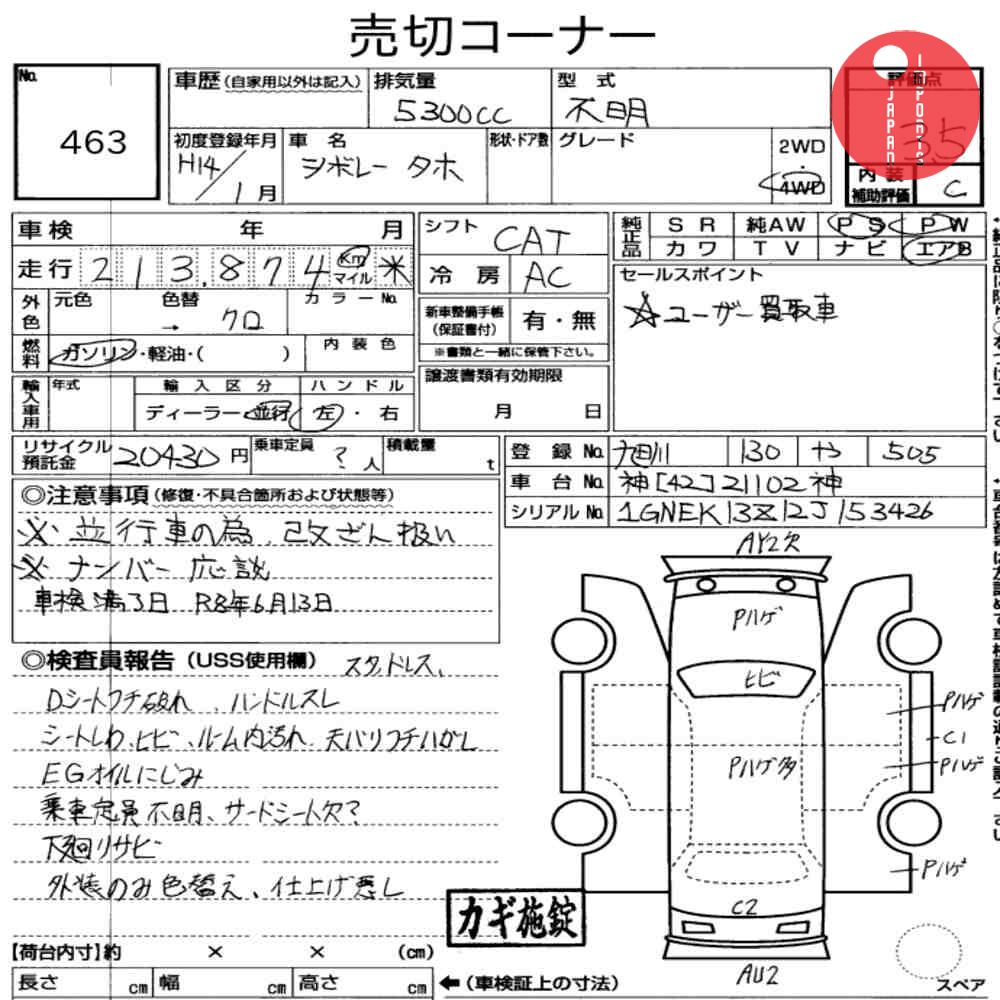 売切コーナー
No. 463
車歴 (自家用以外は記入)
排気量 5300cc
型式 不明
評価点 3.5
JAPAN IMPORTS
初度登録年月 H14/1月
車名 シボレー タホ
形状・ドア数
グレード
2WD・4WD
内装補助評価 C
車検 年 月
走行 213,874 Km マイル ※
シフト CAT
冷房 AC
純正品 SR 純AW PS PW
カワ TV ナビ エアB
外色 元色 → 色替 クロ カラーNo.
燃料 ガソリン・軽油・( ) 内装色
新車整備手帳(保証書付) 有・無
※書類と一緒に保管下さい。
セールスポイント
☆ユーザー買取車
輸入車用 年式 輸入区分 ハンドル
ディーラー・並行 左・右
譲渡書類有効期限
月 日
リサイクル預託金 20430円
乗車定員 ?人
積載量 t
登録No. 旭川 130 や 505
車台No. 神[42]21102神
シリアルNo. 1GNEK13Z12J153426
◎注意事項 (修復・不具合箇所および状態等)
※ 並行車の為、改ざん扱い
※ ナンバー応談
車検満了日 R8年6月13日
◎検査員報告 (USS使用欄) スタッドレス、
Dシートフチ破れ、ハンドルスレ
シートしわ、ヒビ、ルーム内汚れ、天バリフチハガレ
EGオイルにじみ
乗車定員不明、サードシート欠?
下廻りサビ
外装のみ色替え、仕上げ悪し
AY2欠
Pハゲ
ヒビ
Pハゲ
C1
Pハゲ多
Pハゲ
Pハゲ
C2
AU2
カギ施錠
スペア
【荷台内寸】約 × × (cm)
長さ cm 幅 cm 高さ cm
←(車検証上の寸法)